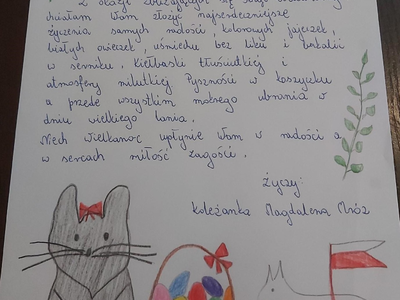 Z okazji zbliżających się
chciałam Wam złożyć najserdeczniejsze
życzenia samych radości, kolorowych jajeczek,
białych owieczek, uśmiechu bez liku i bakalii
w serniku. Kiełbaski tłuściutkiej i
atmosfery milutkiej Pyszności w koszyczku
a przede wszystkim mokrego ubrania w
dniu wielkiego lania.
Niech Wielkanoc upłynie Wam w radości a
w sercach miłość zagości.
Życzy:
Koleżanka Magdalena Mróz